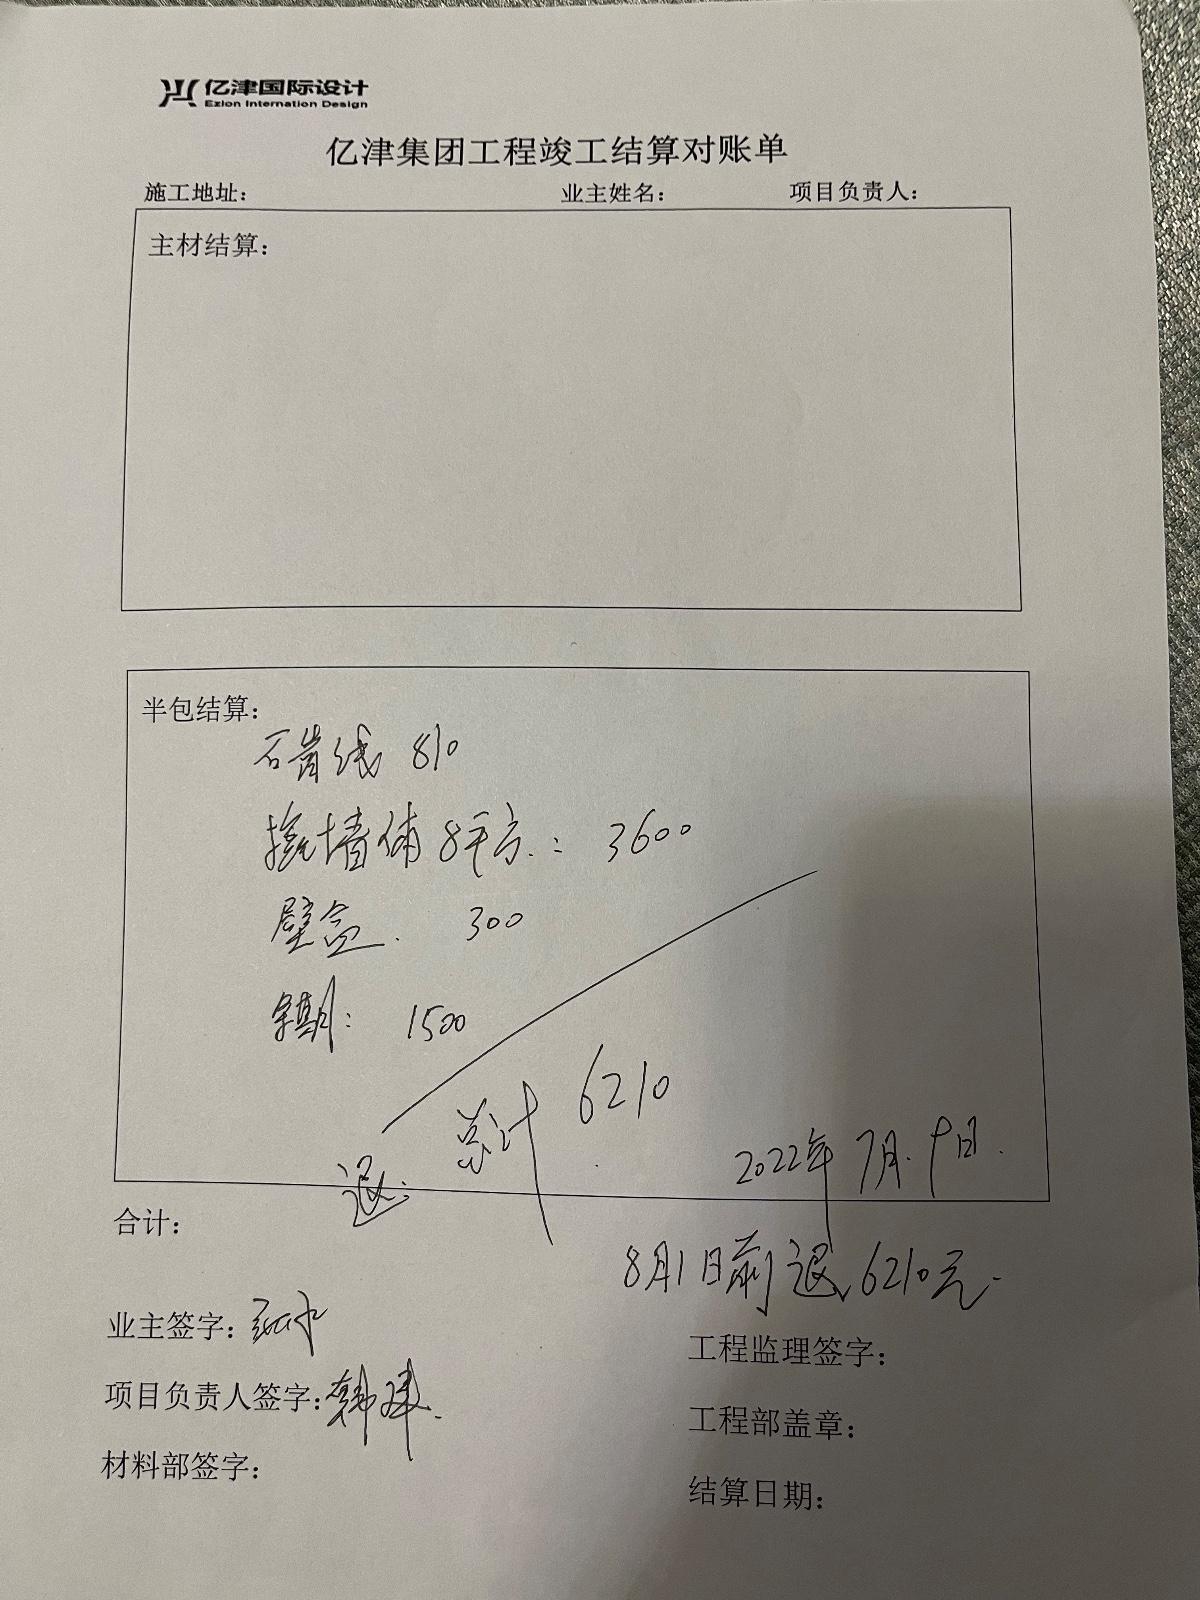 亿津国际设计
Ezion Internation Design
亿津集团工程竣工结算对账单
施工地址： 业主姓名： 项目负责人：
主材结算：
半包结算：
石膏线 810
墙铺8平方.：3600
壁盒. 300
：1500
总计 6210
退：
2022年7月9日.
合计：
8月1日前退6210元.
业主签字：
工程监理签字：
项目负责人签字：韩建.
工程部盖章：
材料部签字：
结算日期：